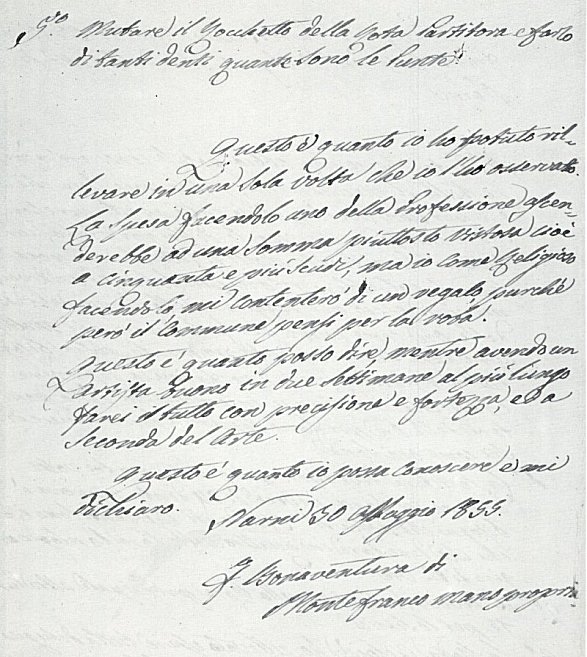 5.º Mutare il Rocchetto della Rota Partitora e farlo
di tanti denti quante sono le Punte.
Questo è quanto io ho potuto ril=
levare in una sola volta che io l'ho osservato.
La spesa facendolo uno della Professione ascen=
derebbe ad una somma piuttosto vistosa cioè
a cinquanta e più scudi, ma io come Religioso
facendolo, mi contenterò di un regalo, purchè
però il Commune pensi per la roba.
Questo è quanto posso dire, mentre avendo un
artista buono in due settimane al più lungo
farei il tutto con precisione e fortezza, ed a
seconda del Arte.
Questo è quanto io possa conoscere e mi
dichiaro.
Narni 30 Maggio 1855.
F. Bonaventura di
Montefranco mano propria